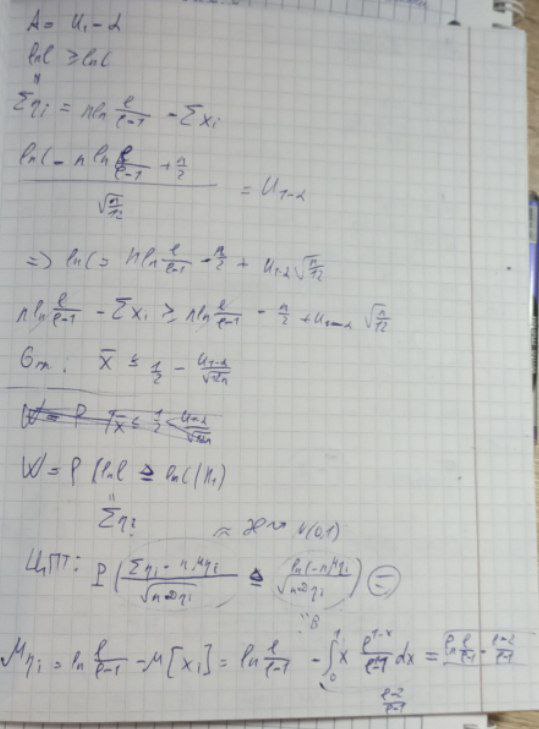 A = u₁₋α
ln l ≥ ln C
Σηᵢ = n ln e/(e-1) - Σxᵢ
(ln C - n ln e/(e-1) + n/2) / √(n/12) = u₁₋α
=> ln C = n ln e/(e-1) - n/2 + u₁₋α √(n/12)
n ln e/(e-1) - Σxᵢ ≥ n ln e/(e-1) - n/2 + u₁₋α √(n/12)
x̄ ≤ 1/2 - u₁₋α/√(12n)
W = P(ln l ≥ ln C | H₁)
Σηᵢ
~ N(0,1)
ЦПТ: P( (Σηᵢ - n Mηᵢ)/√(n Dηᵢ) ≥ (ln C - n Mηᵢ)/√(n Dηᵢ) ) =
B
Mηᵢ = ln e/(e-1) - M[xᵢ] = ln e/(e-1) - ∫₀¹ x e^(1-x)/(e-1) dx = ln e/(e-1) - (e-2)/(e-1)
(e-2)/(e-1)